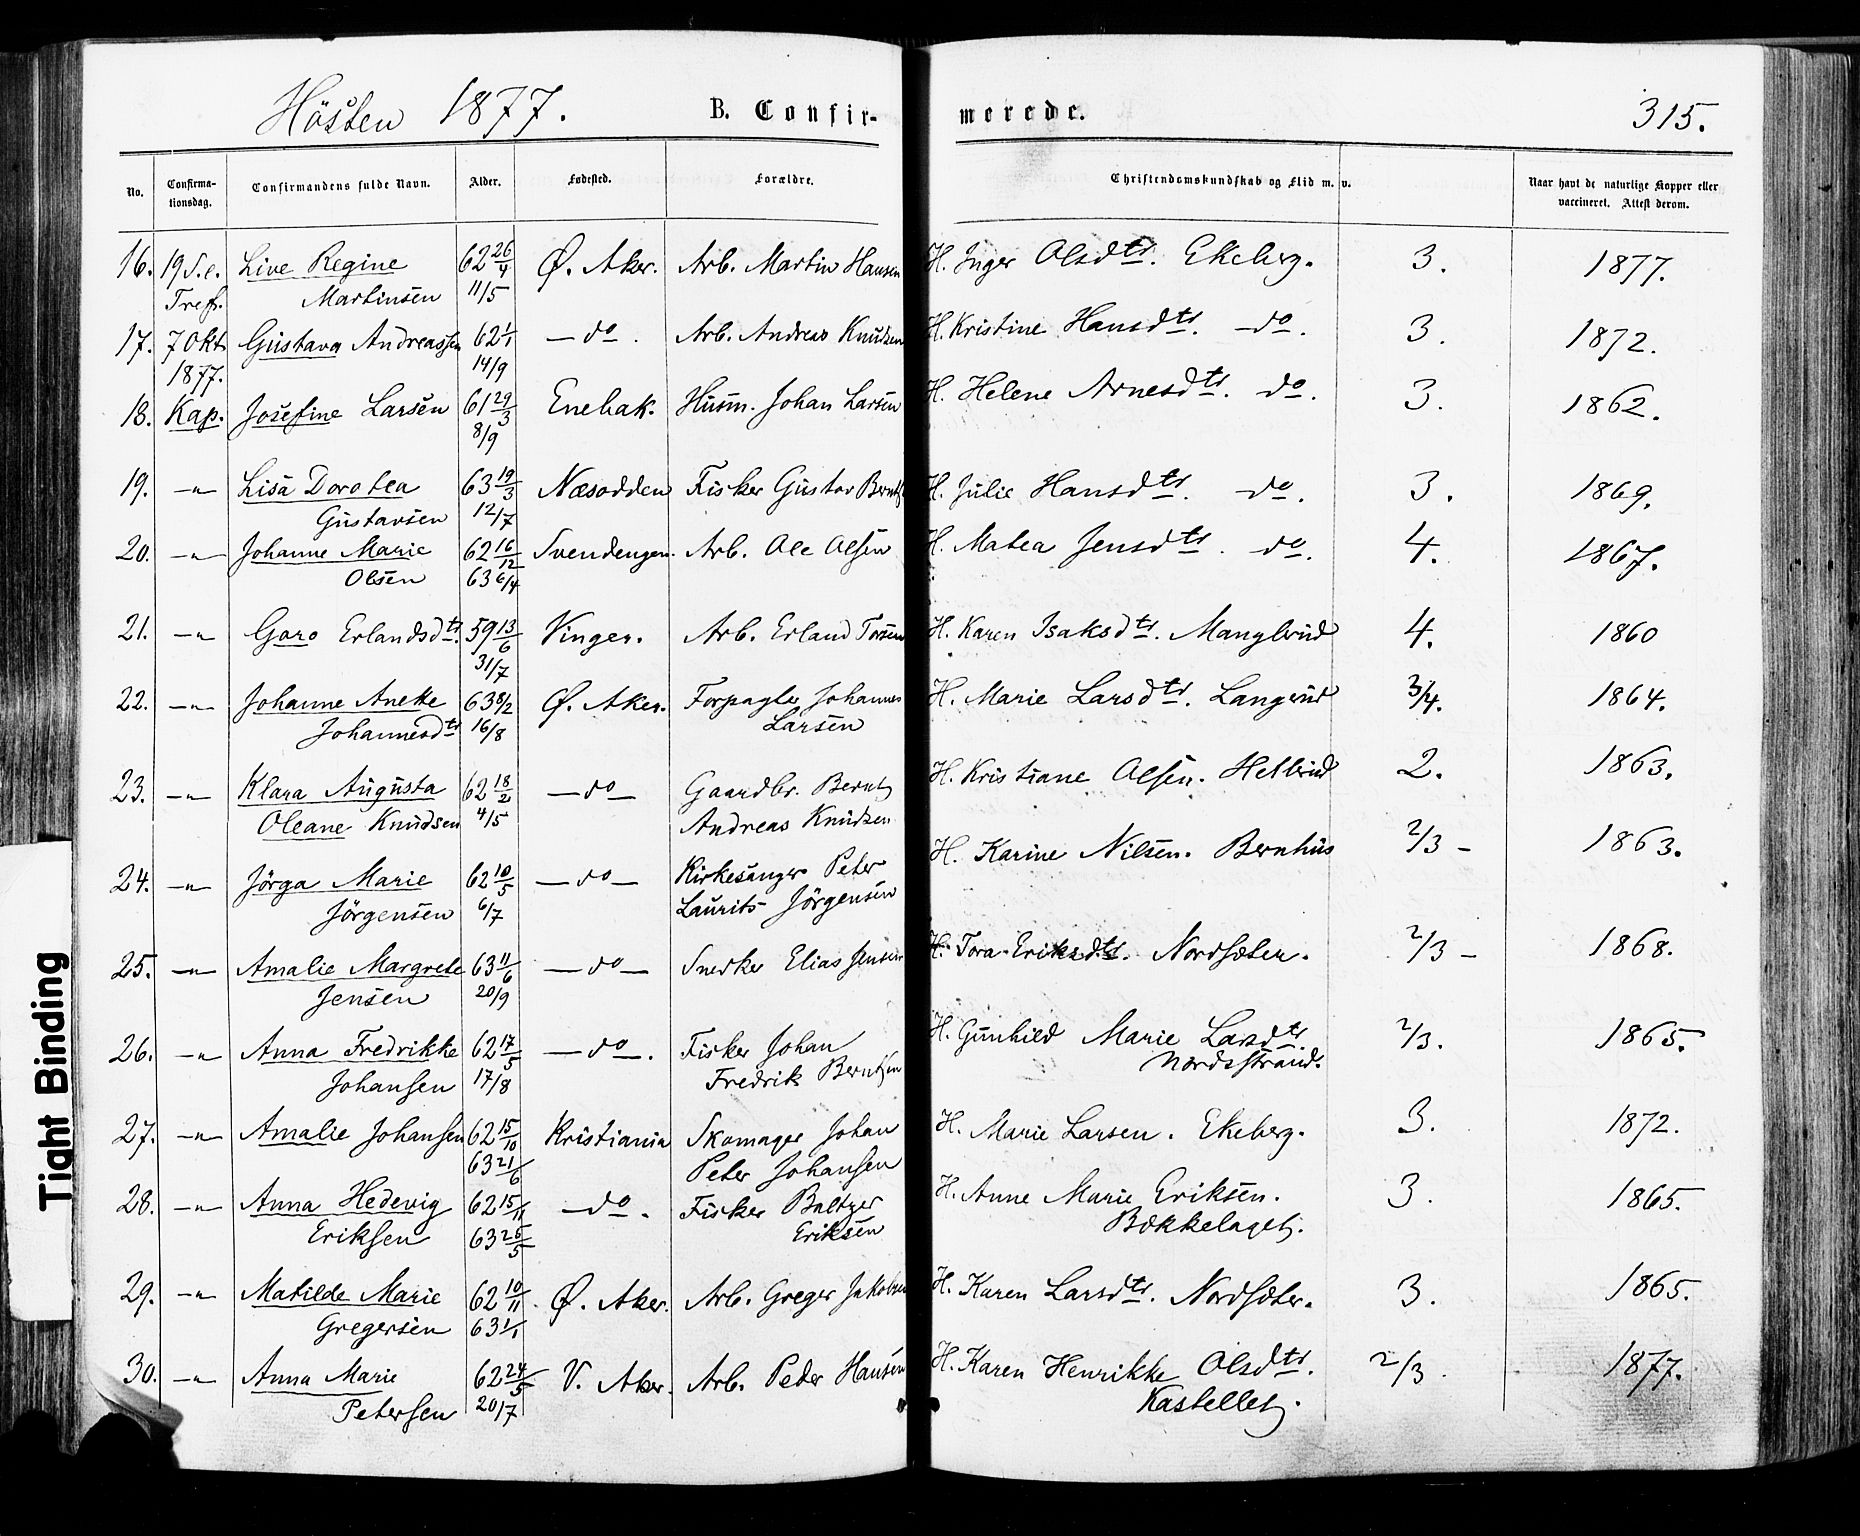 Hösten 1877. B. Confir- merede. 315.
No. Confirma-tionsdag. Confirmandens fulde Navn. Alder. Fødested. Forældre. Christendomskundskab og Flid m. v. Naar havt de naturlige Kopper eller vaccineret. Attest derom.
16. 19 S. e. Live Regine 62 26/4 Ø. Aker. Arb. Martin Hansen H. Inger Olsdtr. Ekeberg. 3. 1877.
Tref. Martinsen 11/5
17. 7 Okt Gustava Andreassen 62 1/1 — do. Arb. Andreas Knudsen H. Kristine Hansdtr. — do. 3. 1872.
1877. 14/9
18. Kap. Josefine Larsen 61 29/3 Enebak. Husm. Johan Larsen H. Helene Arnesdtr. do. 3. 1862.
8/9
19. —"— Lisa Dorotea 63 19/3 Næsodden Fisker Gustav Berntz H. Julie Hansdtr. do. 3. 1869.
Gustavsen 12/7
20. —"— Johanne Marie 62 16/12 Svendengen. Arb. Ole Olsen H. Matea Jensdtr. do. 4. 1867.
Olsen 63 6/4
21. —"— Goro Erlandsdtr. 59 13/6 Vinger. Arb. Erland H. Karen Isaksdtr. Manglerud 4. 1860
31/7
22. —"— Johanne Anette 63 8/2 Ø. Aker. Forpagter Johannes H. Marie Larsdtr. Langerud 3/4. 1864.
Johannesdtr 16/8 Larsen
23. —"— Klara Augusta 62 18/2 — do — Gaardbr. Berntz H. Kristiane Olsen. Hellerud 2. 1863.
Oleane Knudsen 4/5 Andreas Knudsen
24. —"— Jörga Marie 62 10/5 — do — Kirkesanger Peter H. Karine Nilsen. Bernhus 2/3 — 1863.
Jörgensen 6/7 Laurits Jörgensen
25. —"— Amalie Margrete 63 11/6 — do — Snedker Elias Jensen H. Tora Eriksdtr. Nordsæter. 2/3 — 1868.
Jensen 20/9
26. —"— Anna Fredrikke 62 17/5 — do —. Fisker Johan H. Gunhild Marie Larsdtr. 2/3. 1865.
Johansen 17/8 Fredrik Berntsen Nordsstrand.
27. —"— Amalie Johansen 62 15/10 Kristiania Skomager Johan H. Marie Larsen. Ekeberg. 3. 1872.
63 21/6 Peter Johansen
28. —"— Anna Hedevig 62 15/11 — do —. Fisker Baltzer H. Anne Marie Eriksen. 3. 1865.
Eriksen 63 26/5 Eriksen Bækkelaget.
29. —"— Matilde Marie 62 10/11. Ø. Aker. Arb. Greger Jakobsen H. Karen Larsdtr. Nordsæter. 3. 1865.
Gregersen 63 1/1
30. —"— Anna Marie 62 24/5 V. Aker. Arb. Peder Hansen H. Karen Henrikke Olsdtr. 2/3. 1877.
Petersen 20/7 Kastellet.
Tight Binding